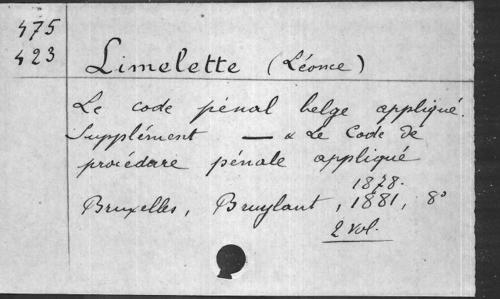 475
423
Limelette (Léonce)
Le code pénal belge appliqué.
Supplément — « Le Code de
procédure pénale appliqué
1878.
Bruxelles, Bruylant, 1881, 8°
2 vol.